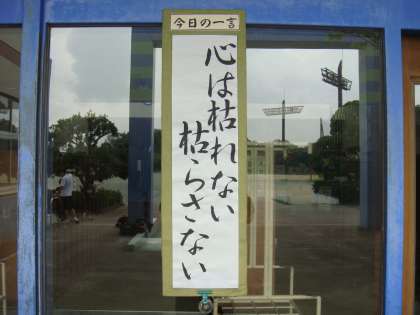 今日の一言
心は枯れない
枯らさない